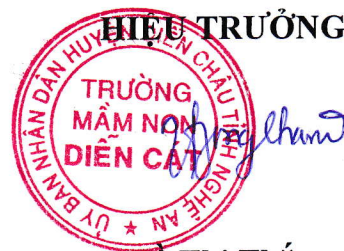 HIỆU TRƯỞNG
ỦY BAN NHÂN DÂN HUYỆN DIỄN CHÂU TỈNH NGHỆ AN ★
TRƯỜNG
MẦM NON
DIỄN CÁT